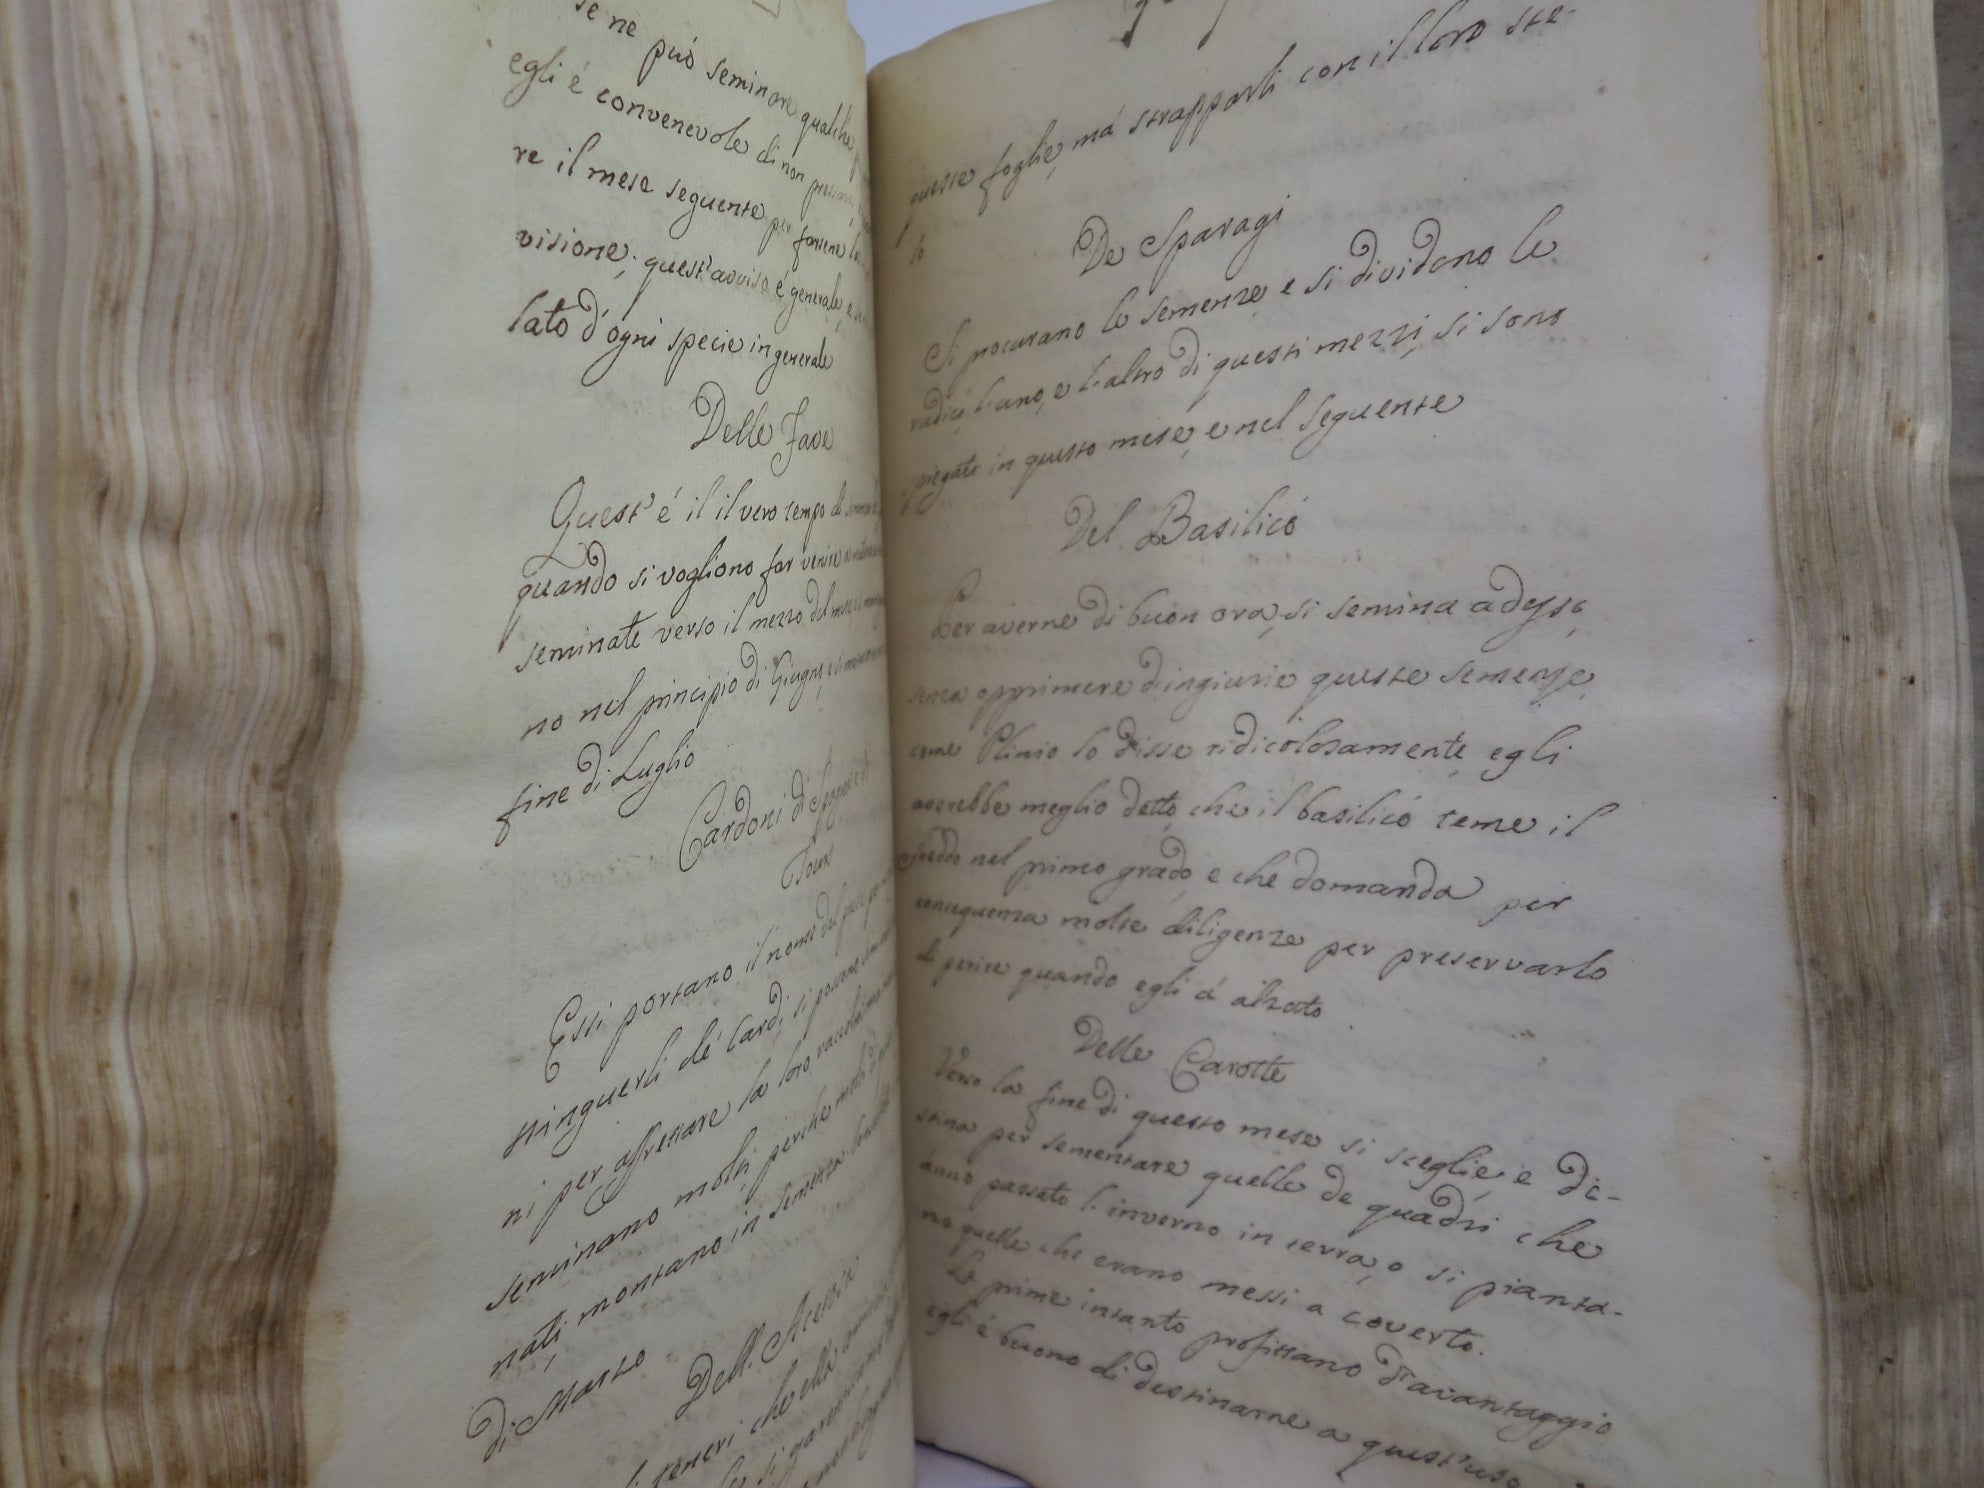 se ne può seminare qualche
egli é convenevole di non
re il mese seguente per farsene
visione; quest'avviso é generale, e
lato d'ogni specie in generale
Delle Fave
Quest' é il il vero tempo di
quando si vogliono far venire
seminate verso il mezzo del mese
no nel principio di Giugno
fine di Luglio
Cardoni di
Tours
Essi portano il nome del
stinguerli de' Cardi, si possono
ni per affrettare la loro raccolta
seminano molti perche molti
nati montano in semenza
di Marzo
Dell' Acetosa
teneri che ella
queste foglie, má strapparli con il loro ste-
lo
De Sparagi
Si procurano le semenze e si dividono le
radici, l'uno, e l'altro di questi mezzi si sono
piegati in questo mese, e nel seguente
Del Basilicó
Per averne di buon ora, si semina adesso
senza opprimere d'ingiurie queste semenze,
come Plinio lo disse ridicolosamente, egli
averebbe meglio detto, che il basilicó teme il
freddo nel primo grado, e che domanda per
conseguenza molte diligenze per preservarlo
di perire quando egli é alzato.
Delle Carotte
Verso la fine di questo mese si sceglie, e de-
stina per sementare quelle de quadri che
ánno passato l'inverno in terra, o si pianta-
no quelle che erano messi a coverto.
Le prime intanto profittano d'avantaggio
egli é buono di destinarne a quest'uso